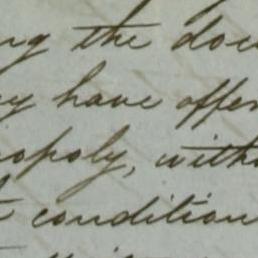 ng the doc
ey have offer
nopoly, with
t condition